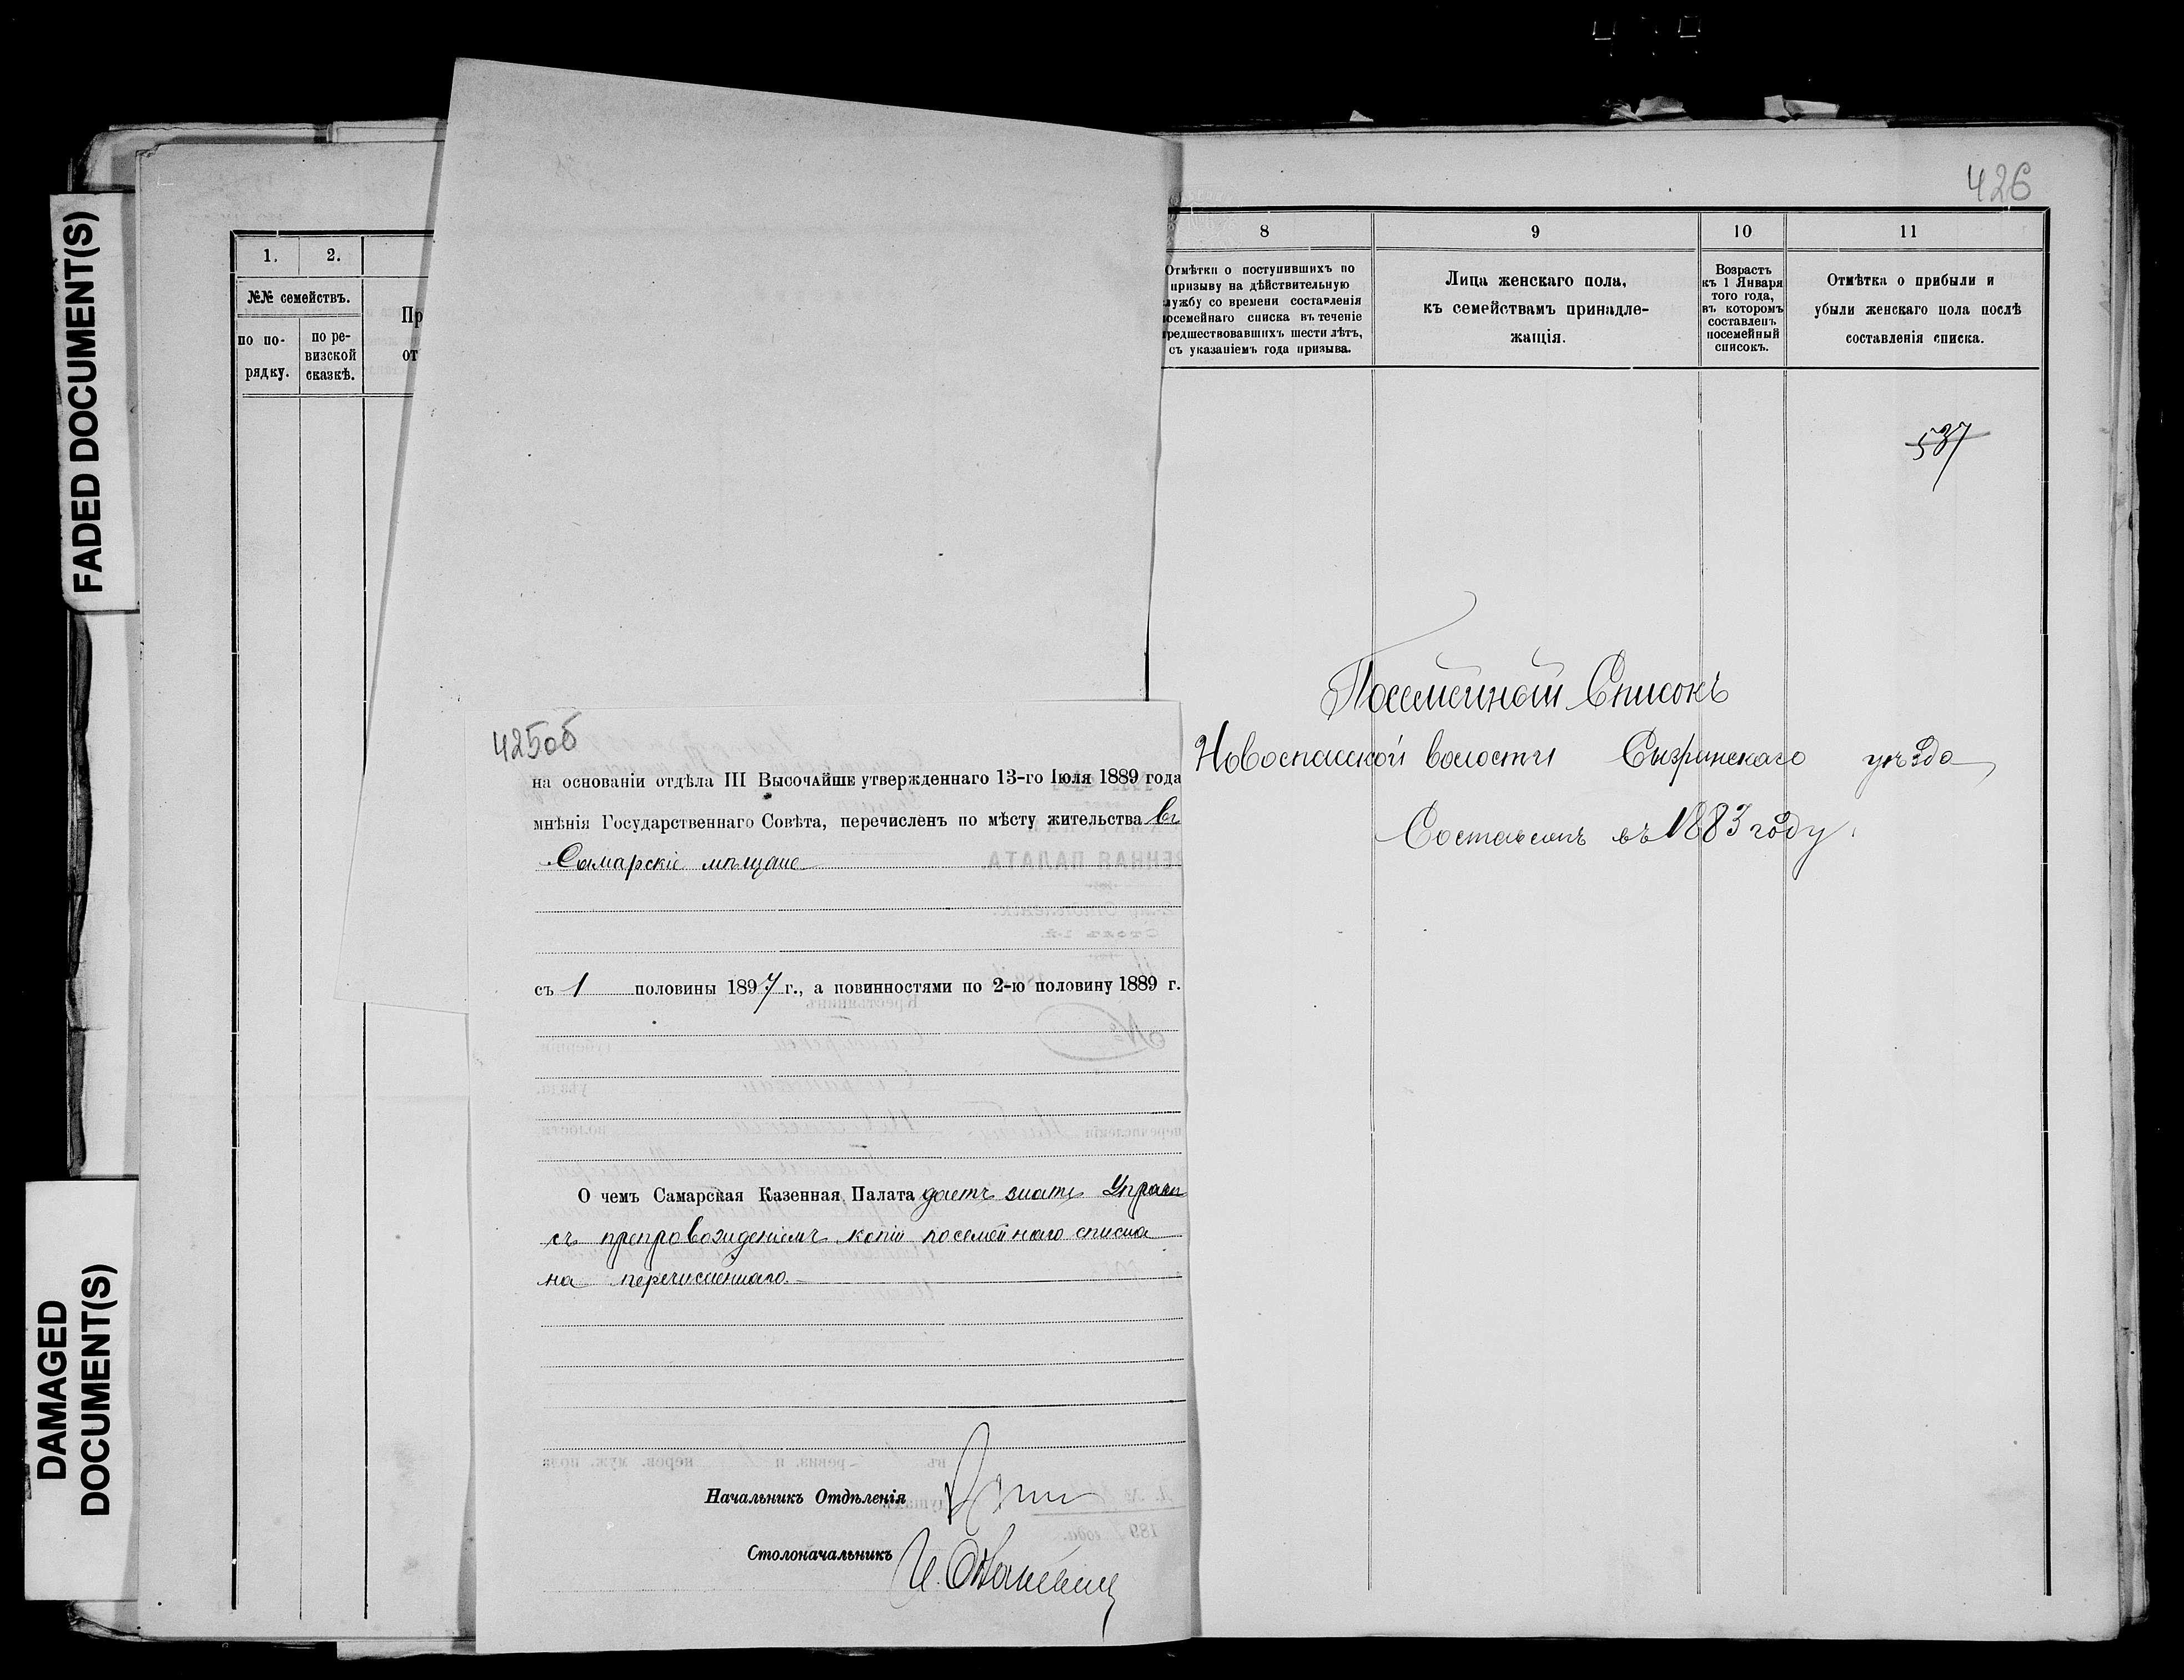 FADED DOCUMENT(S)
DAMAGED
DOCUMENT(S)
1.
2.
№№ семействъ.
по по-
рядку.
по ре-
визской
сказкѣ.
Пр
от
425об
на основаніи отдѣла III Высочайше утвержденнаго 13-го Іюля 1889 года
мнѣнія Государственнаго Совѣта, перечисленъ по мѣсту жительства въ
Самарскіе мѣщане
съ 1 половины 1897 г., а повинностями по 2-ю половину 1889 г.
О чемъ Самарская Казенная Палата даетъ знать
съ препровожденіемъ копіи посемейнаго списка
на перечисленнаго.
Начальникъ Отдѣленія
Столоначальникъ
426
8
9
10
11
Отмѣтки о поступившихъ по
призыву на дѣйствительную
лужбу со времени составленія
осемейнаго списка въ теченіе
редшествовавшихъ шести лѣтъ,
съ указаніемъ года призыва.
Лица женскаго пола,
къ семействамъ принадле-
жащія.
Возрастъ
къ 1 Января
того года,
въ которомъ
составленъ
посемейный
списокъ.
Отмѣтка о прибыли и
убыли женскаго пола послѣ
составленія списка.
537
Посемейный Списокъ
Новоспасской волости Сызранскаго уѣзда
Составленъ въ 1883 году.